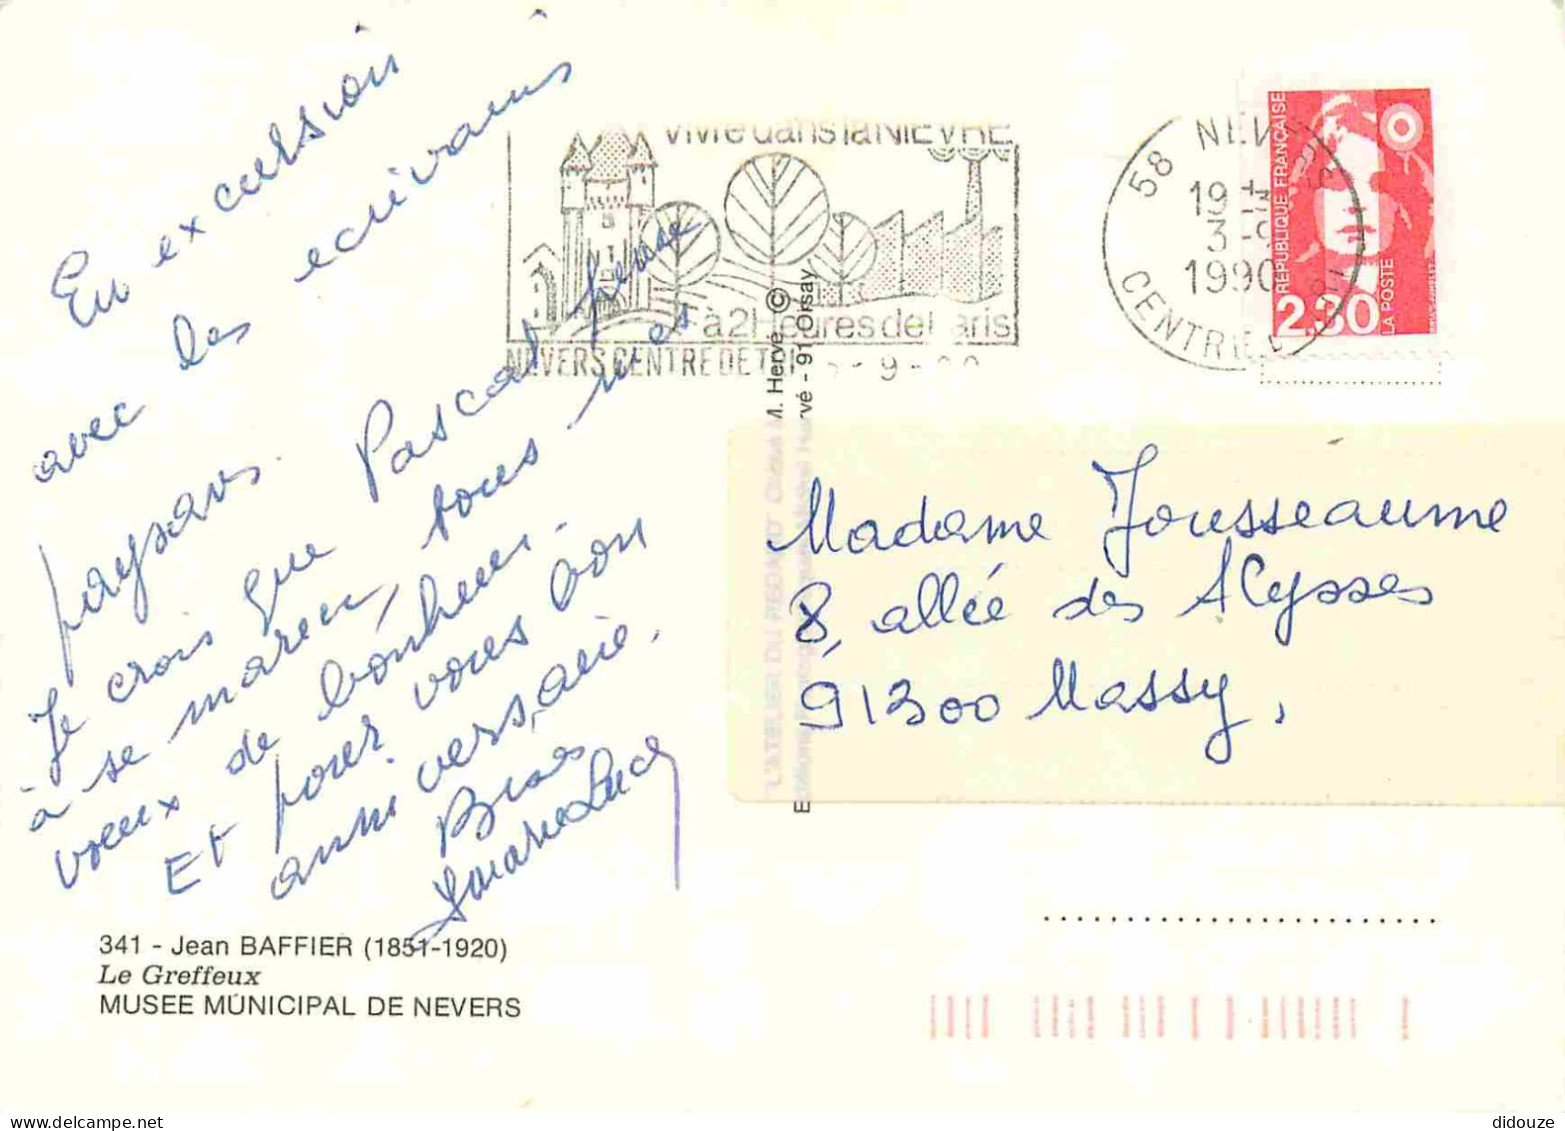 En excursion
avec les écrivains
paysans.
Je crois que Pascal pense
à se marier, tous mes
voeux de bonheur.
Et pour vous bon
anniversaire.
Bises
Marie Luce
341 - Jean BAFFIER (1851-1920)
Le Greffeux
MUSEE MUNICIPAL DE NEVERS
Vivre dans la NIEVRE
à 2 Heures de Paris
NEVERS CENTRE DE TRI
M. Hervé ©
Hervé - 91 Orsay
L'ATELIER DU REGARD
58 NEV
19 H
3-9
1990
CENTRE
REPUBLIQUE FRANÇAISE
2,30
LA POSTE
Madame Jousseaume
8, allée des Alysses
91300 Massy,
didouze